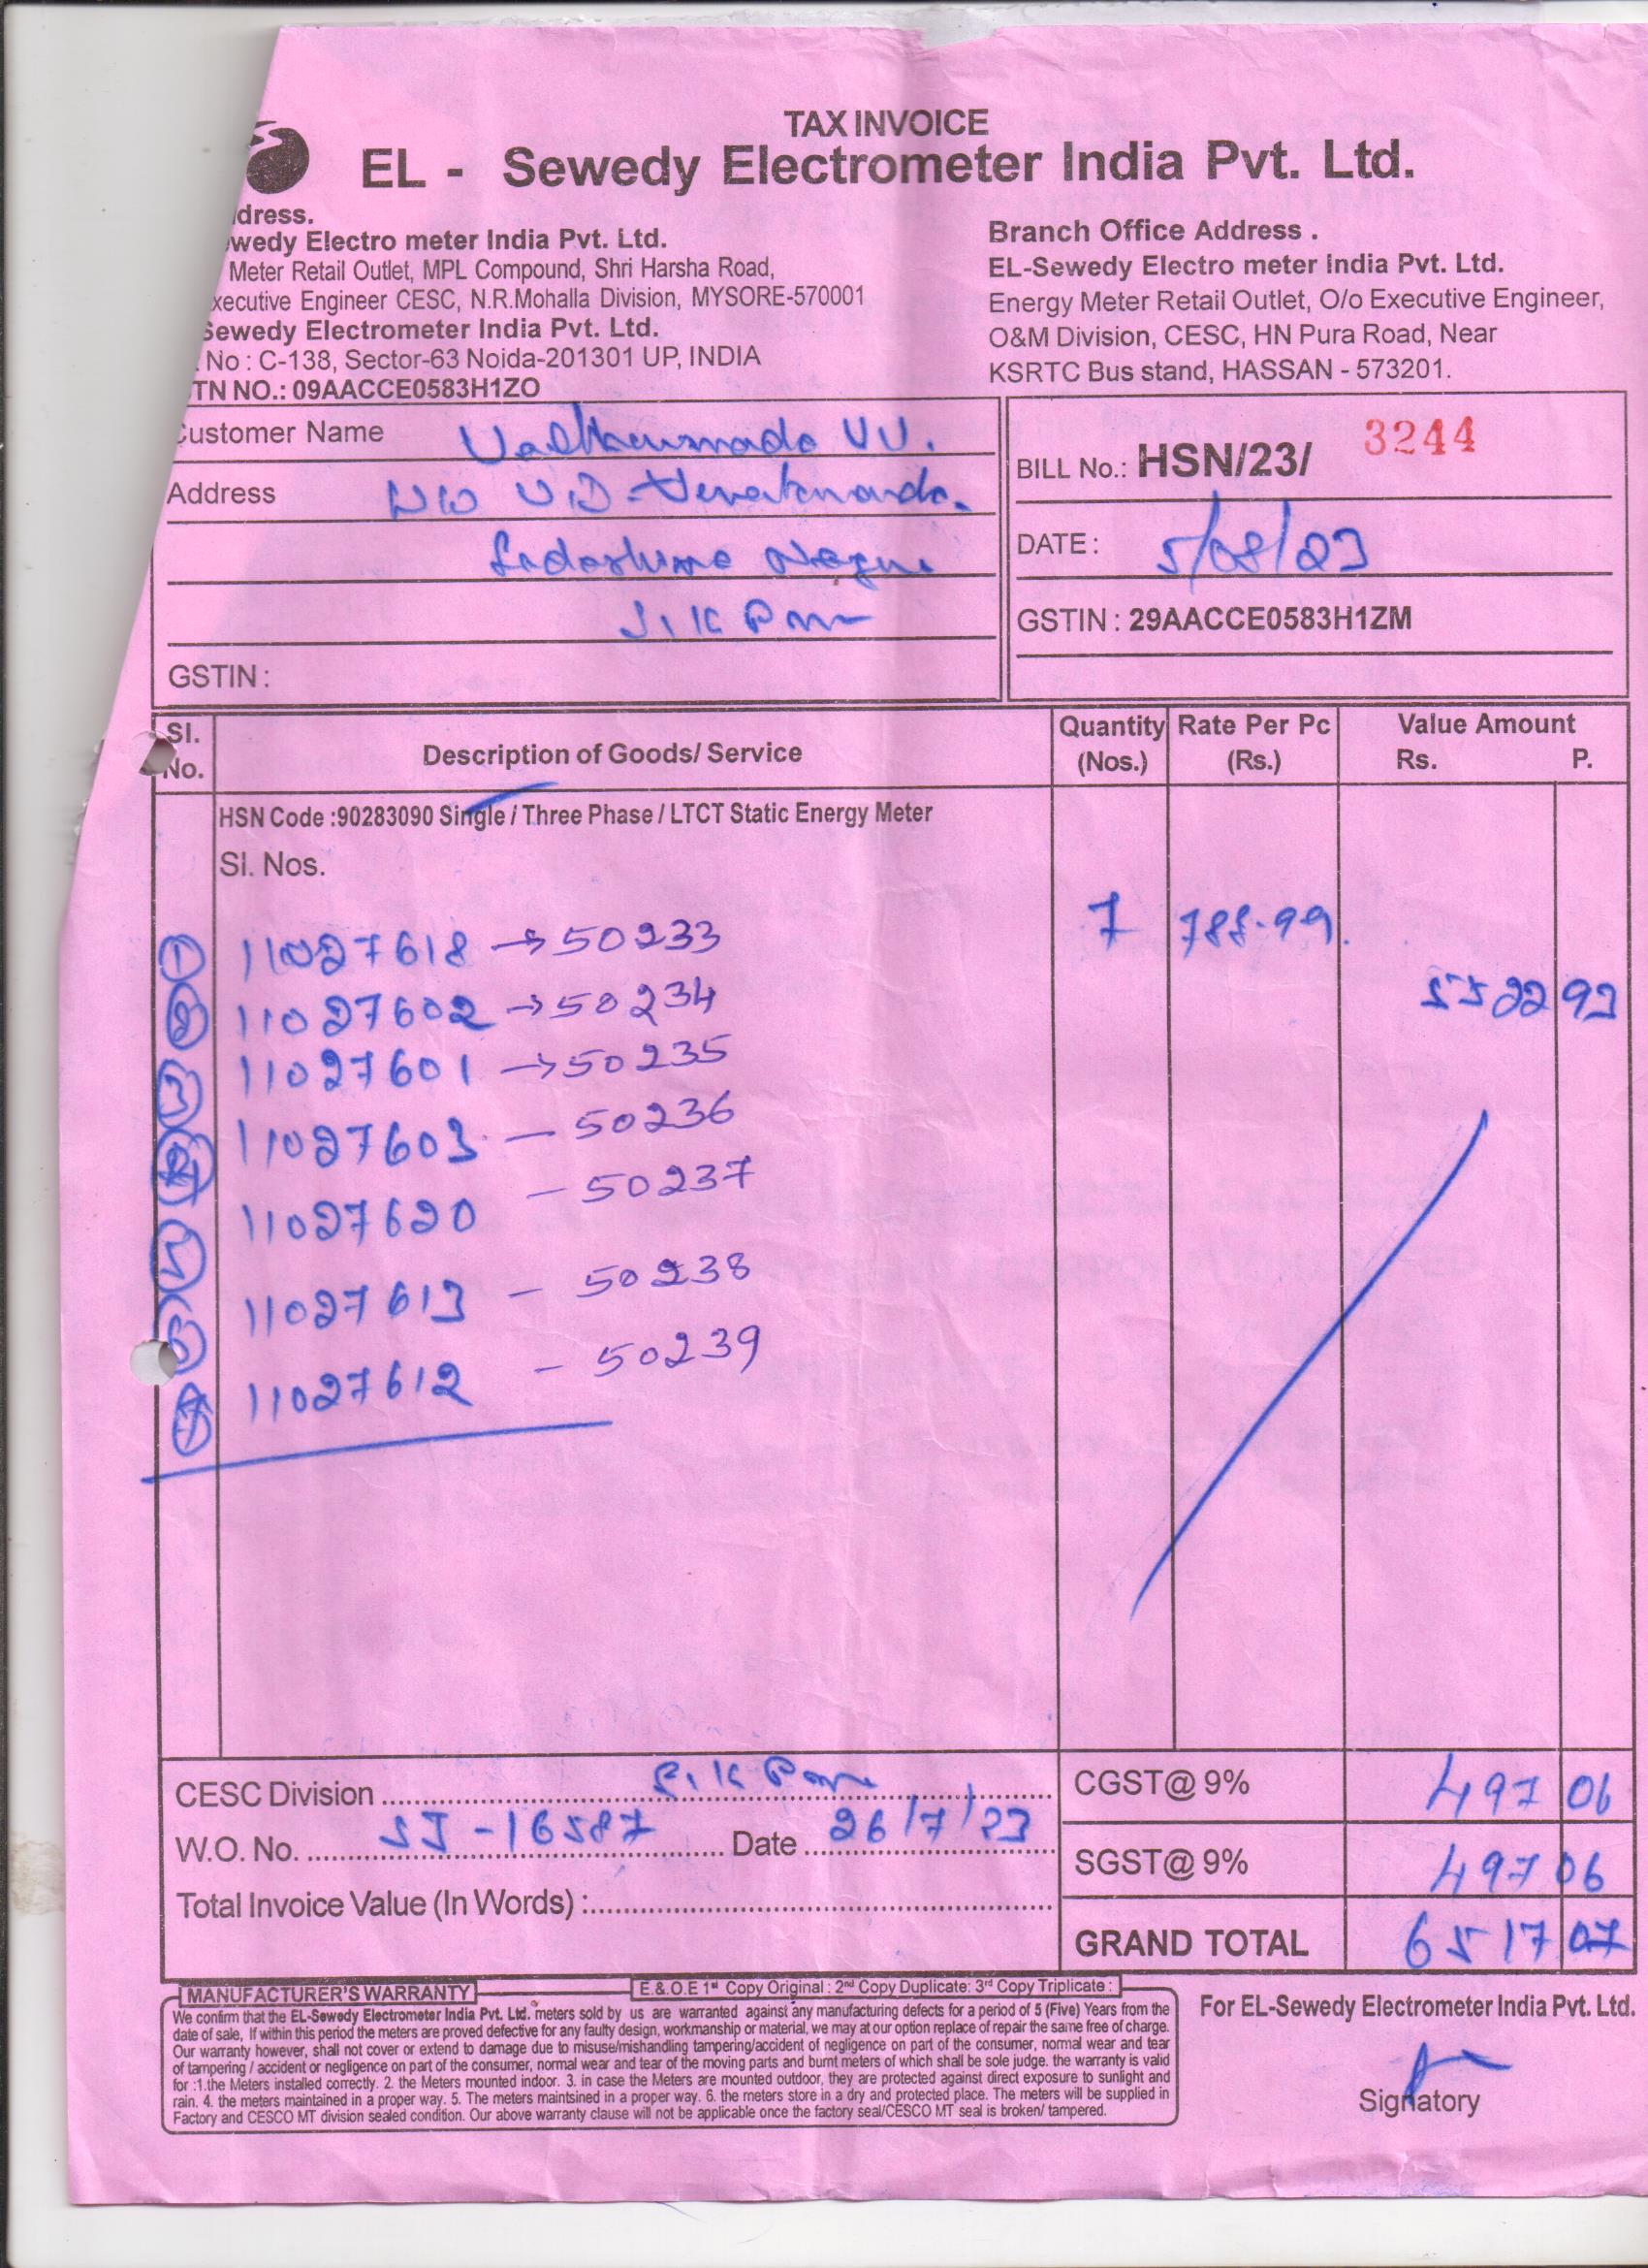 TAX INVOICE
EL - Sewedy Electrometer India Pvt. Ltd.
dress.
wedy Electro meter India Pvt. Ltd.
Meter Retail Outlet, MPL Compound, Shri Harsha Road,
xecutive Engineer CESC, N.R.Mohalla Division, MYSORE-570001
Sewedy Electrometer India Pvt. Ltd.
No : C-138, Sector-63 Noida-201301 UP, INDIA
TN NO.: 09AACCE0583H1ZO
Branch Office Address .
EL-Sewedy Electro meter India Pvt. Ltd.
Energy Meter Retail Outlet, O/o Executive Engineer,
O&M Division, CESC, HN Pura Road, Near
KSRTC Bus stand, HASSAN - 573201.
Customer Name
Address
GSTIN :
BILL No.: HSN/23/ 3244
DATE : 5/08/23
GSTIN : 29AACCE0583H1ZM
Sl. No. Description of Goods/ Service Quantity (Nos.) Rate Per Pc (Rs.) Value Amount Rs. P.
HSN Code :90283090 Single / Three Phase / LTCT Static Energy Meter
Sl. Nos.
7 788.99 5522 93
1 11027618 → 50233
2 11027602 → 50234
3 11027601 → 50235
4 11027603 - 50236
5 11027620 - 50237
6 11027613 - 50238
7 11027612 - 50239
CESC Division
W.O. No. SJ-16587 Date 26/7/23
Total Invoice Value (In Words) :
CGST@ 9% 497 06
SGST@ 9% 497 06
GRAND TOTAL 6517 07
MANUFACTURER'S WARRANTY E.& O.E 1st Copy Original : 2nd Copy Duplicate: 3rd Copy Triplicate :
We confirm that the EL-Sewedy Electrometer India Pvt. Ltd. meters sold by us are warranted against any manufacturing defects for a period of 5 (Five) Years from the
date of sale, If within this period the meters are proved defective for any faulty design, workmanship or material, we may at our option replace of repair the same free of charge.
Our warranty however, shall not cover or extend to damage due to misuse/mishandling tampering/accident of negligence on part of the consumer, normal wear and tear
of tampering / accident or negligence on part of the consumer, normal wear and tear of the moving parts and burnt meters of which shall be sole judge. the warranty is valid
for :1.the Meters installed correctly. 2. the Meters mounted indoor. 3. in case the Meters are mounted outdoor, they are protected against direct exposure to sunlight and
rain. 4. the meters maintained in a proper way. 5. The meters maintsined in a proper way. 6. the meters store in a dry and protected place. The meters will be supplied in
Factory and CESCO MT division sealed condition. Our above warranty clause will not be applicable once the factory seal/CESCO MT seal is broken/ tampered.
For EL-Sewedy Electrometer India Pvt. Ltd.
Signatory